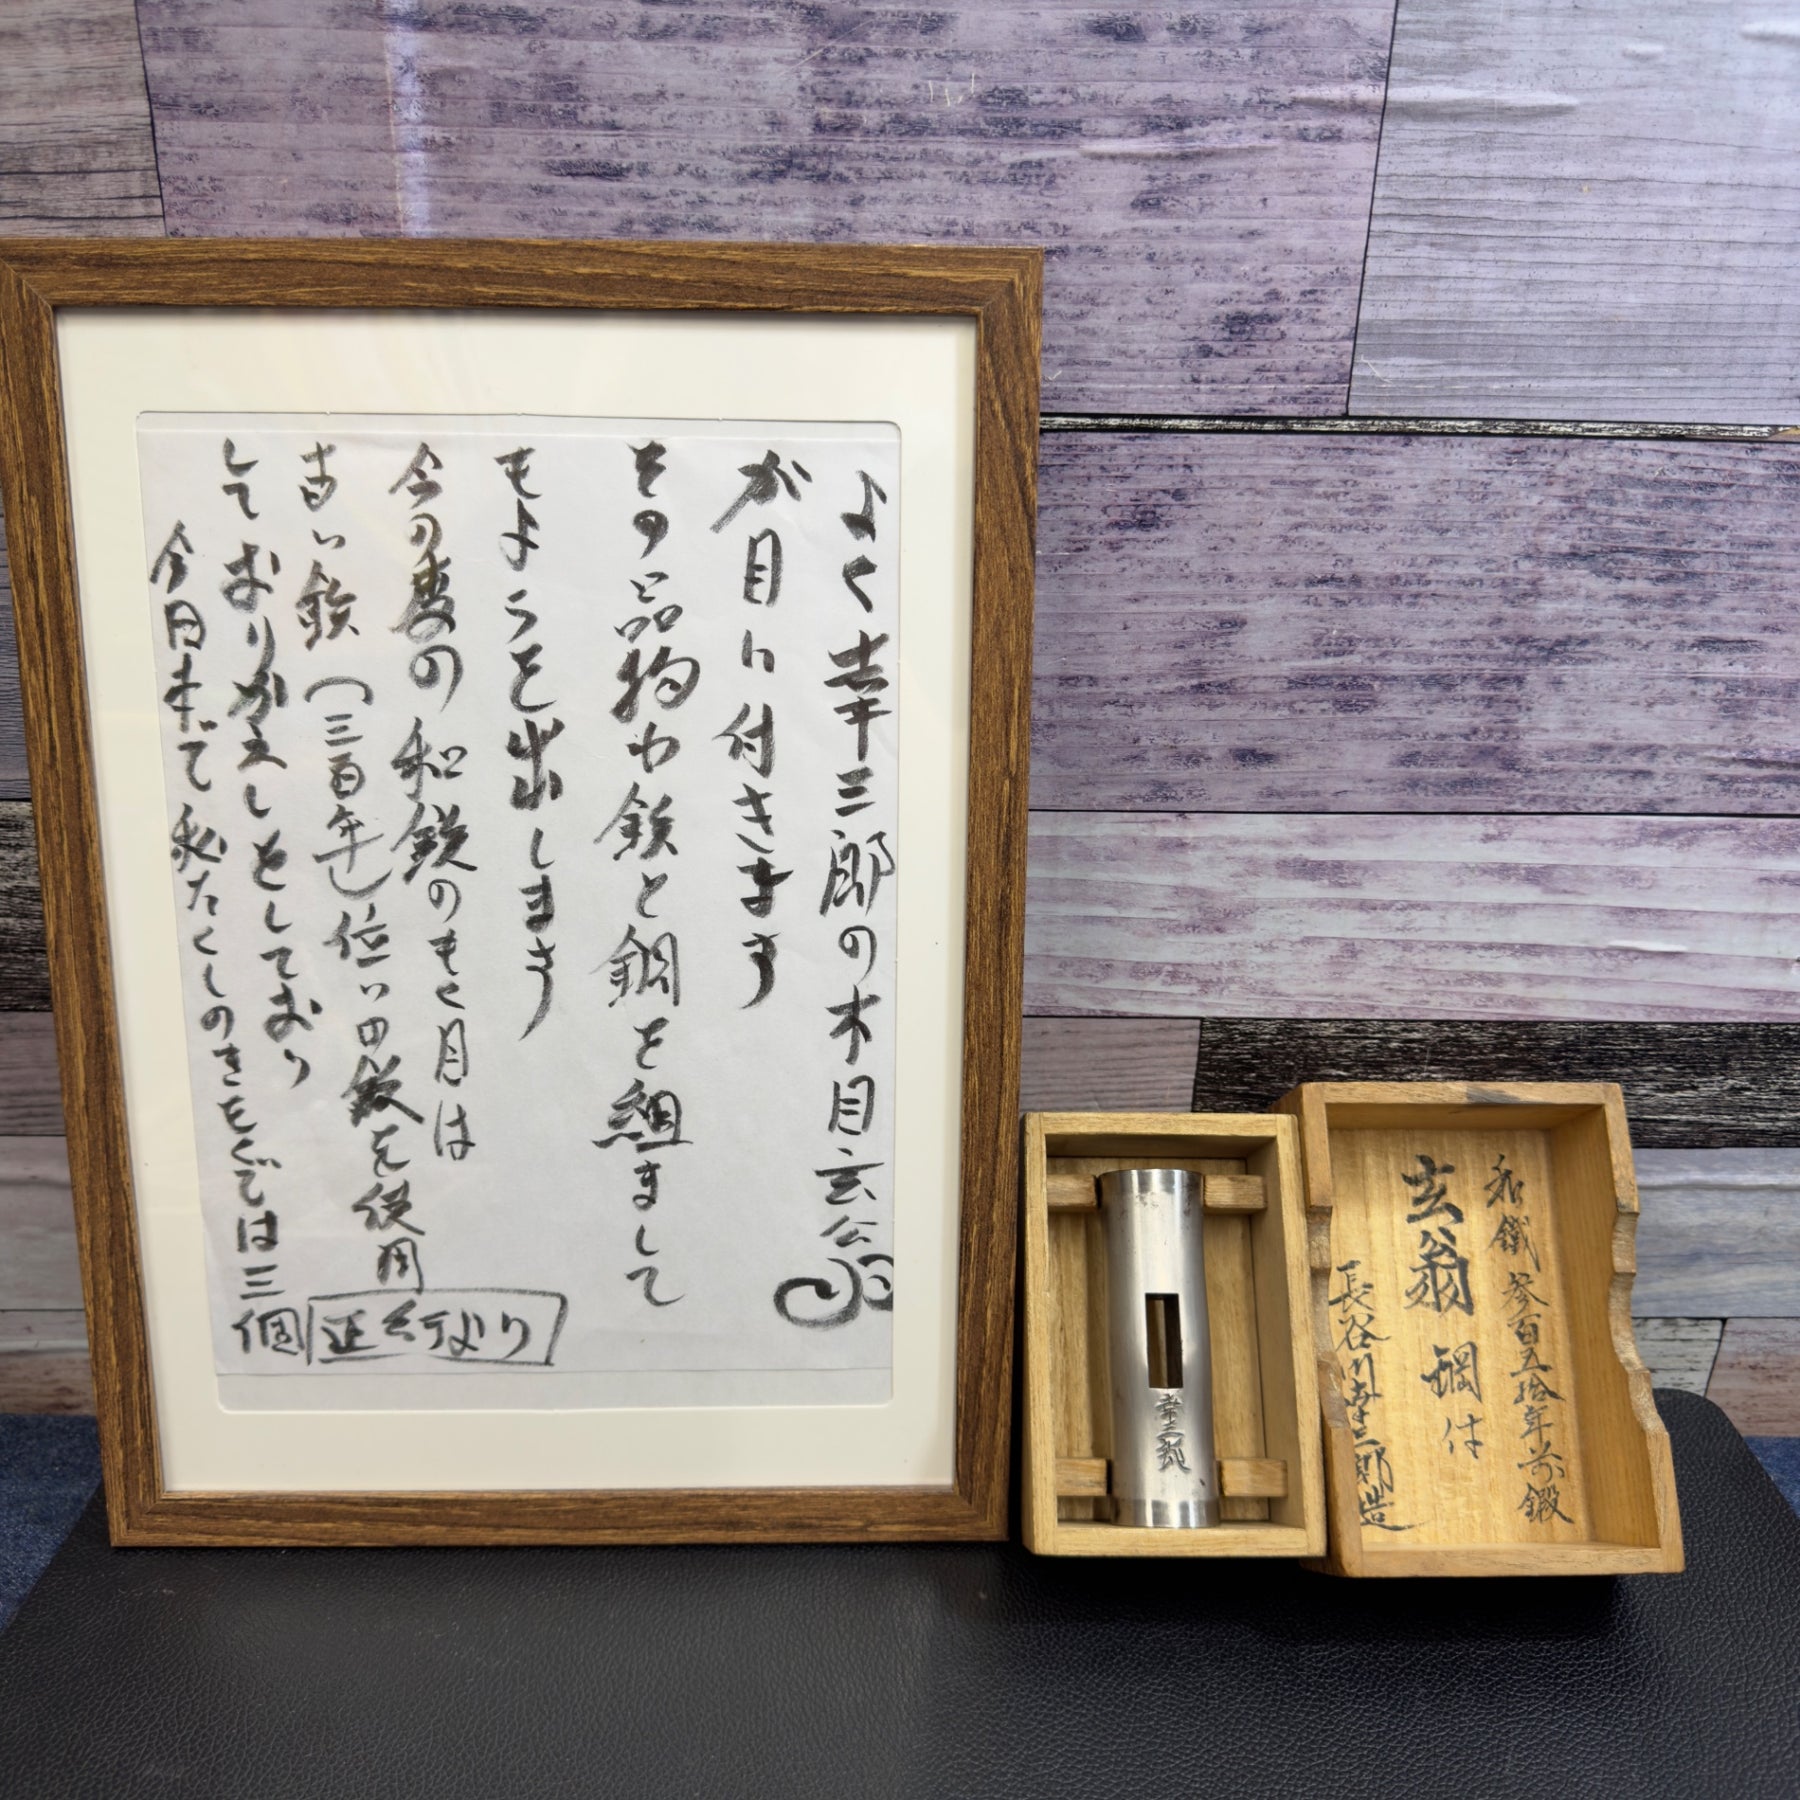 よく幸三郎の木目玄翁
が目に付きます
その品物わ鉄と鋼を組まして
もようを出します
今の度の和鉄のもく目は
古い鉄(三百年)位いの鉄を使用
しており かえしをしており
今日まで私たくしのきをくでは三個
正行より
幸三郎
和鐵参百五拾年前鍛
玄翁 鋼付
長谷川幸三郎造